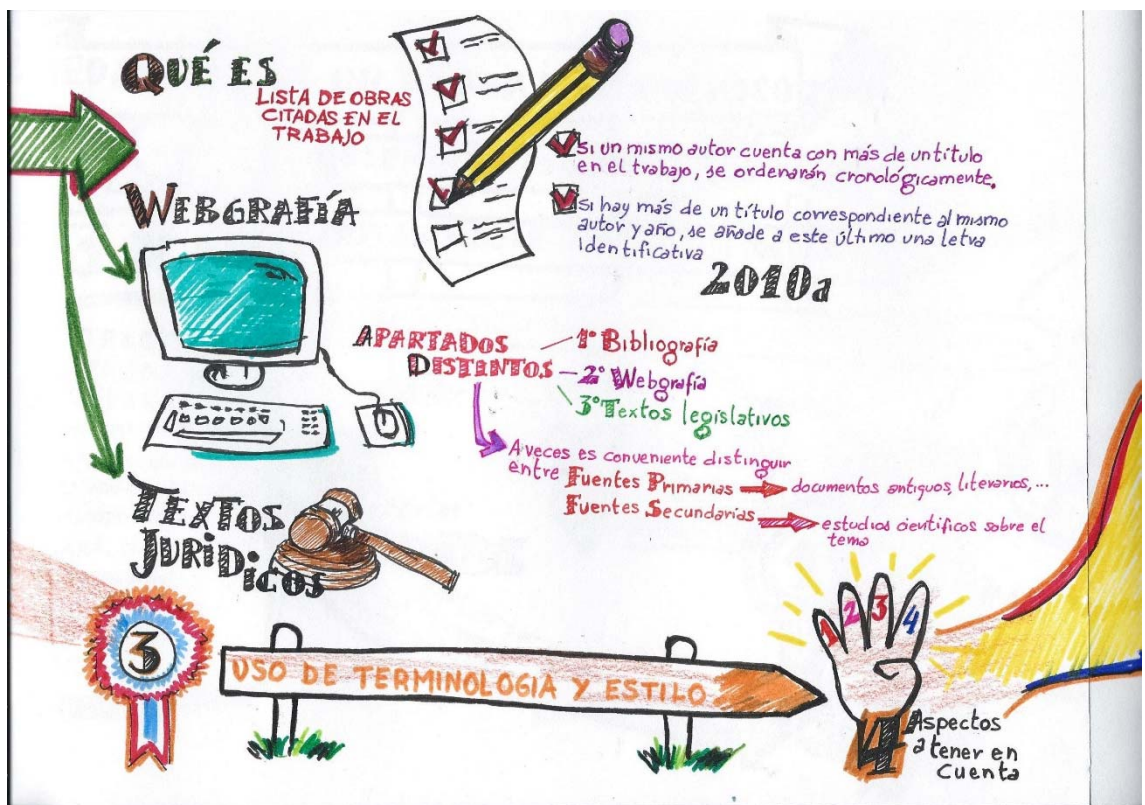 QUÉ ES
LISTA DE OBRAS
CITADAS EN EL
TRABAJO
Si un mismo autor cuenta con más de un título
en el trabajo, se ordenarán cronológicamente.
Si hay más de un título correspondiente al mismo
autor y año, se añade a este último una letra
identificativa
2010a
WEBGRAFÍA
APARTADOS
DISTINTOS
1º Bibliografía
2º Webgrafía
3º Textos legislativos
A veces es conveniente distinguir
entre Fuentes Primarias documentos antiguos, literarios,...
Fuentes Secundarias estudios científicos sobre el
tema
TEXTOS
JURIDICOS
3
USO DE TERMINOLOGIA Y ESTILO
1 2 3 4
4 Aspectos
a tener en
cuenta